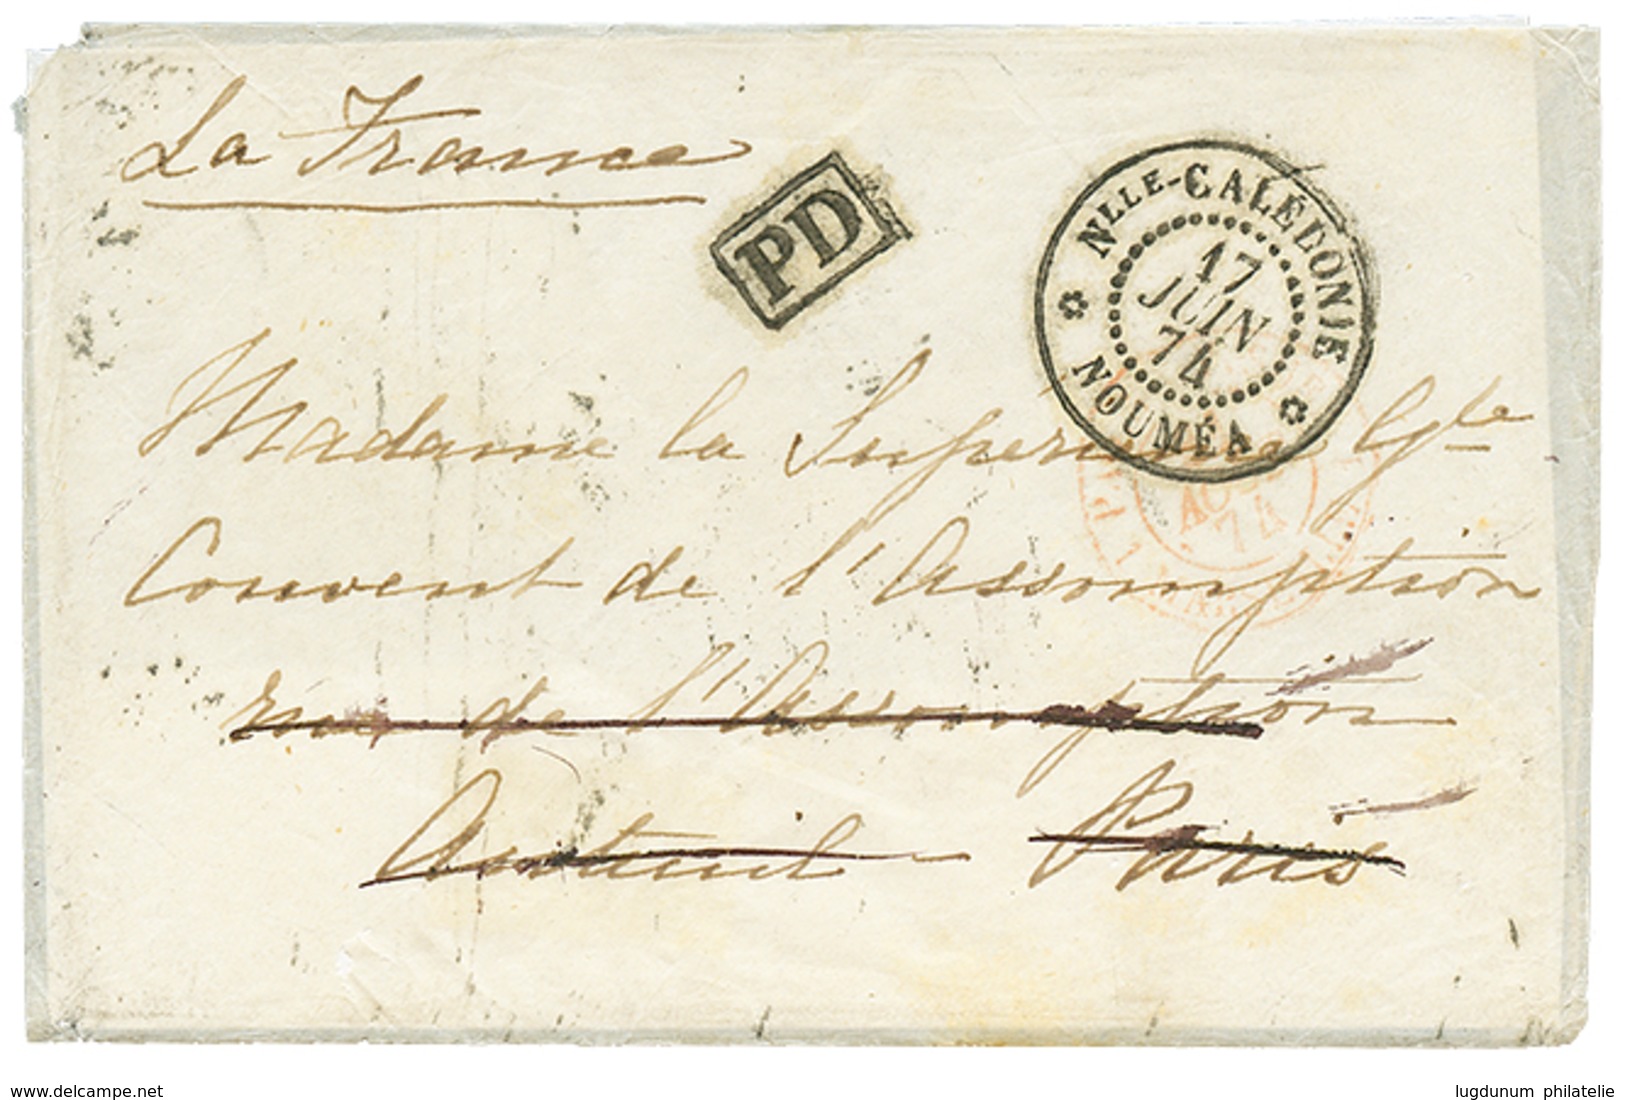 La France
PD
NLLE-CALÉDONIE
17
JUIN
74
NOUMÉA
Madame la Supérieure Gle
AOUT
74
Couvent de l'Assomption
rue de l'Assomption
Auteuil - Paris
www.delcampe.net
lugdunum philatelie